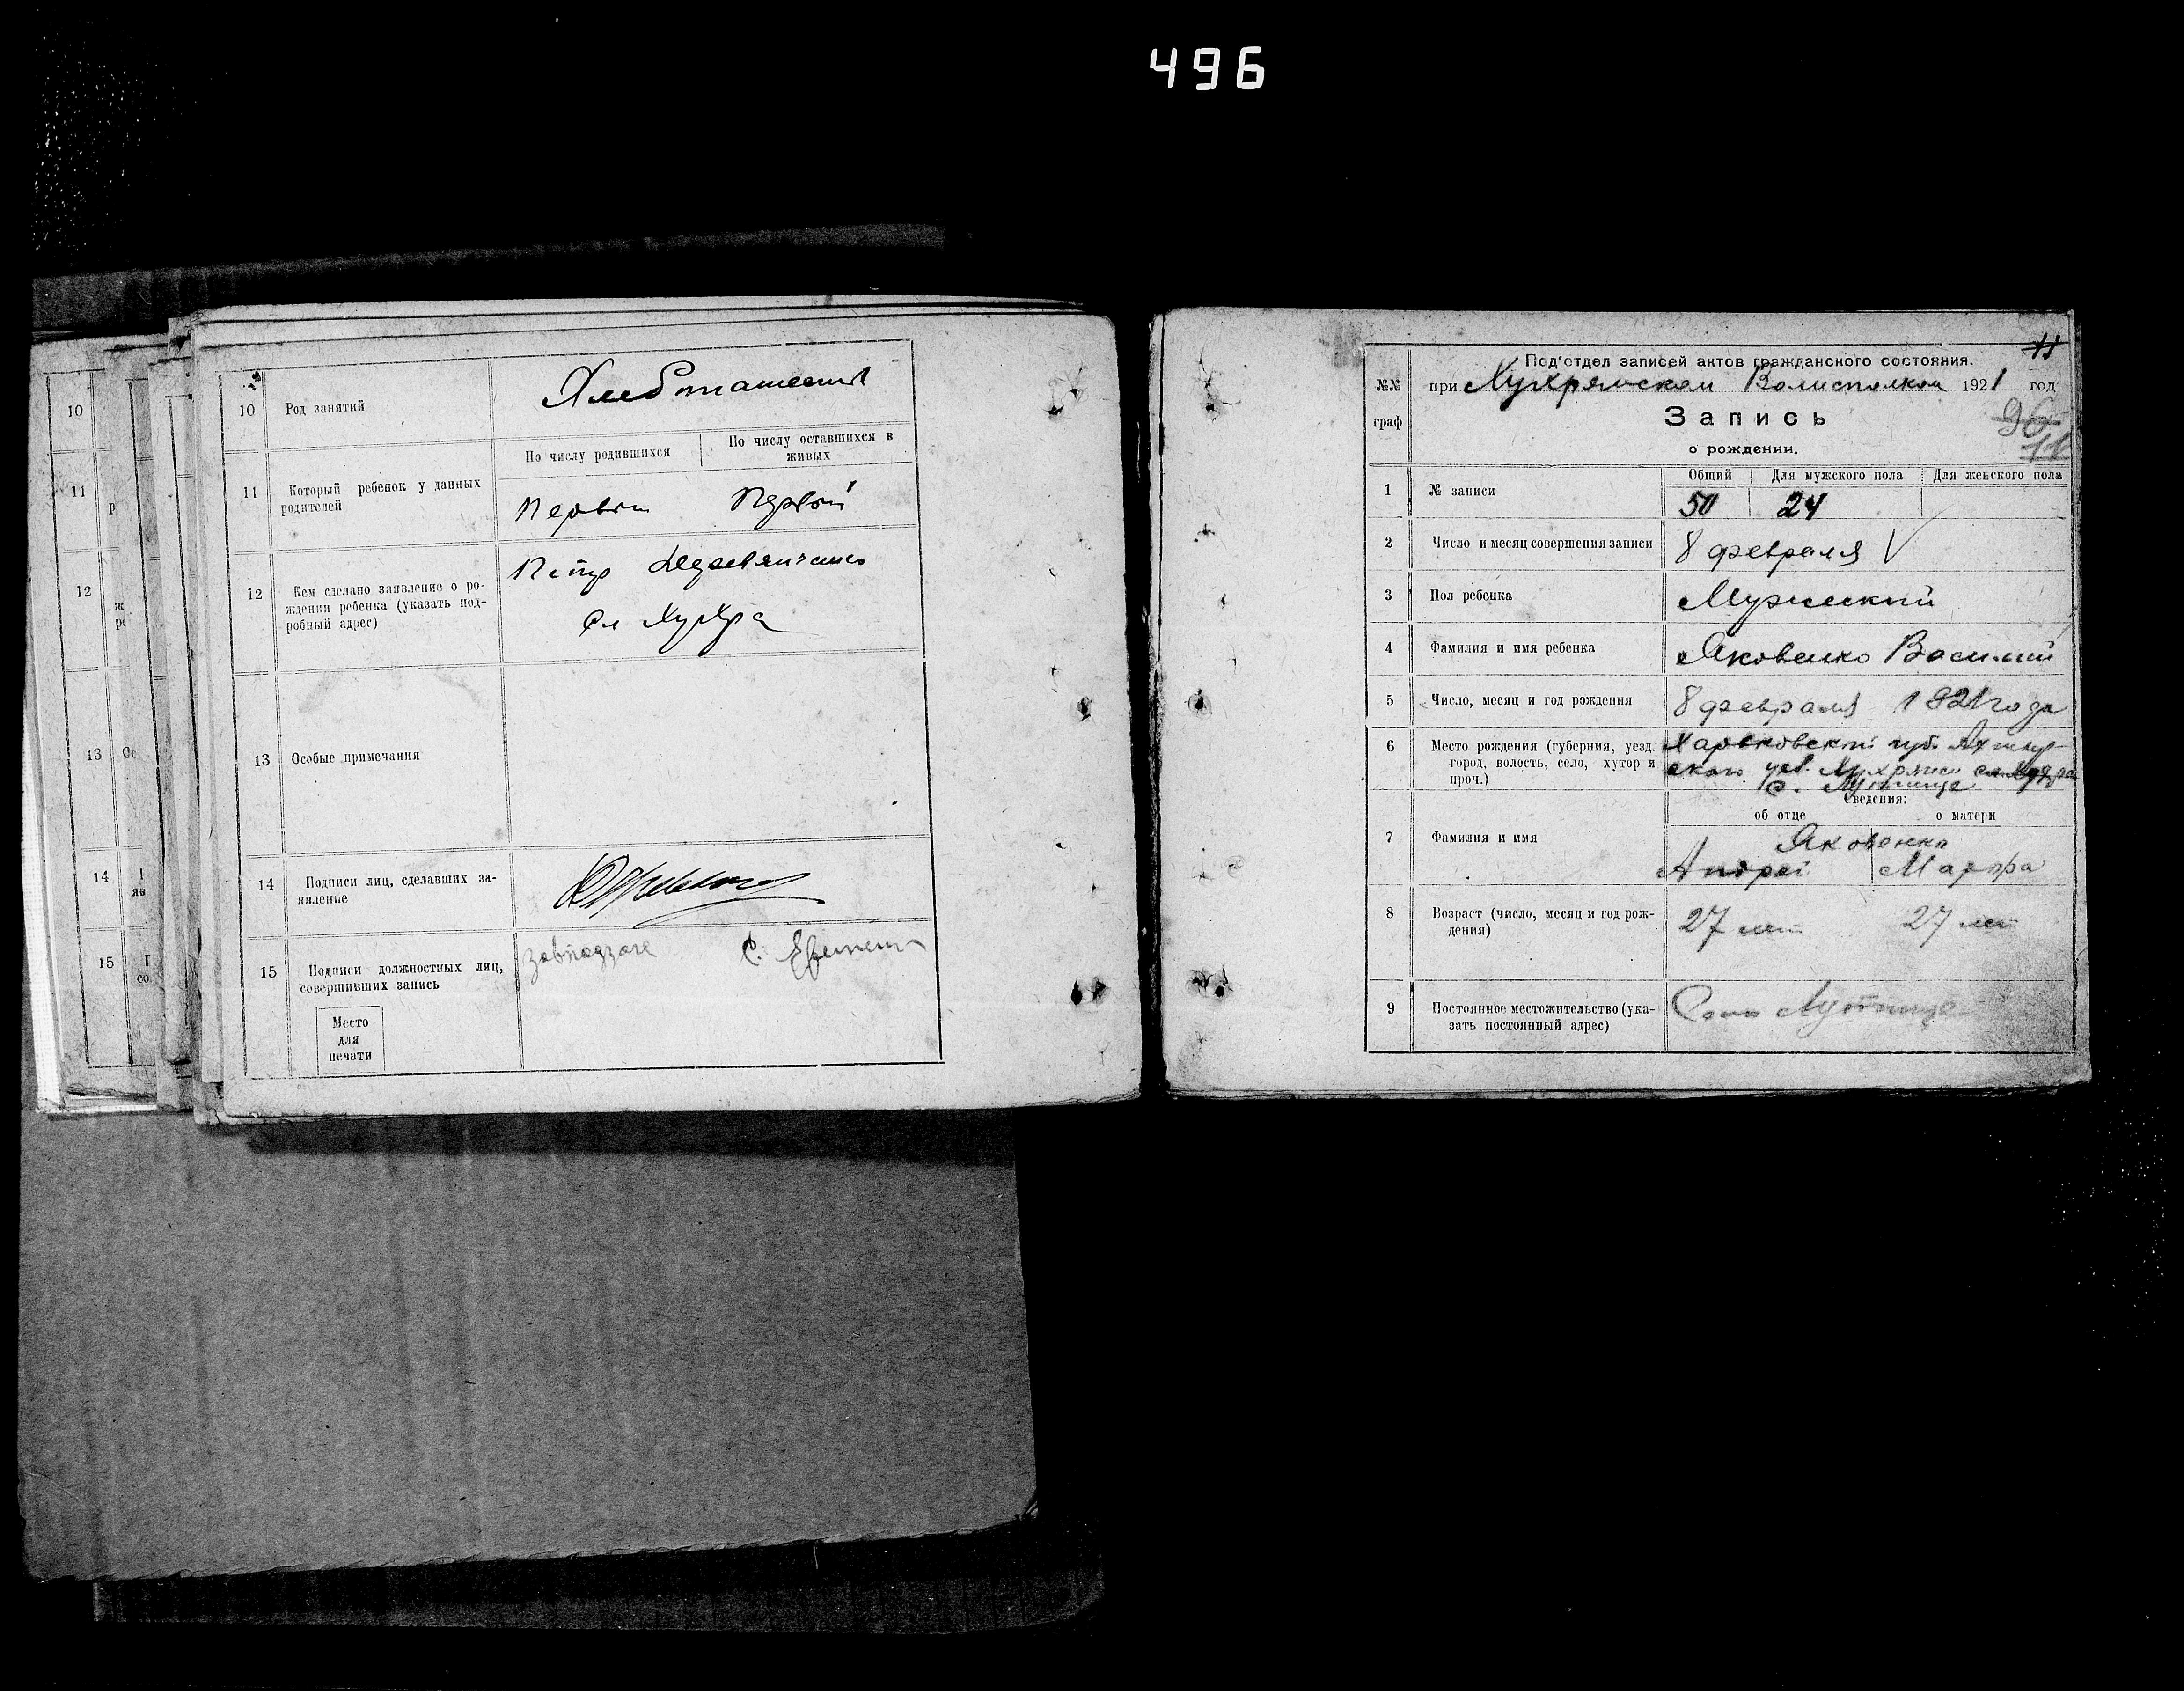 496
10
11
р
12
ж
13
Ос
14
яв
15
со
10
Род занятий
Хлебопашество
11
Который ребенок у данных
родителей
По числу родившихся
По числу оставшихся в
живых
Первый
Первый
12
Кем сделано заявление о ро-
ждении ребенка (указать под-
робный адрес)
Петр Деревянченко
сл Хухра
13
Особые примечания
14
Подписи лиц, сделавших за-
явление
15
Подписи должностных лиц,
совершивших запись
С.
Место
для
печати
№№
граф
Под'отдел записей актов гражданского состояния.
11
при Хухрянском Волисполком 1921 год
Запись
о рождении.
96
11
1
№ записи
Общий
Для мужского пола
Для женского пола
50
24
2
Число и месяц совершения записи
8 февраля
3
Пол ребенка
Мужеский
4
Фамилия и имя ребенка
Яковенко Василий
5
Число, месяц и год рождения
8 февраля 1921 года
6
Место рождения (губерния, уезд,
город, волость, село, хутор и
проч.)
Харьковской губ. Ахтыр-
ского уез. Хухрянск сл Хухра
с. Лутище
Сведения:
об отце
о матери
7
Фамилия и имя
Яковенко
Андрей
Марфа
8
Возраст (число, месяц и год рож-
дения)
27 лет
27 лет
9
Постоянное местожительство (ука-
зать постоянный адрес)
Село Лутище